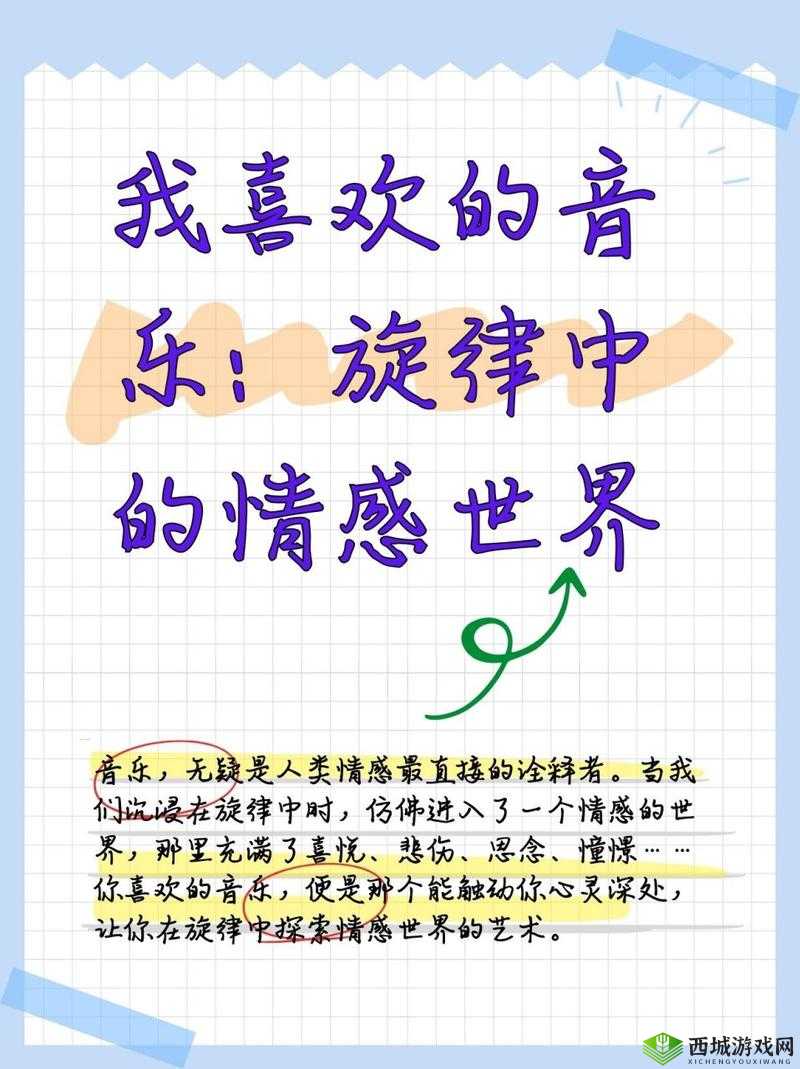 我喜欢的音
乐：旋律中
的情感世界
音乐，无疑是人类情感最直接的诠释者。当我
们沉浸在旋律中时，仿佛进入了一个情感的世
界，那里充满了喜悦、悲伤、思念、憧憬……
你喜欢的音乐，便是那个能触动你心灵深处，
让你在旋律中探索情感世界的艺术。
西城游戏网
XICHENGYOUXIWANG